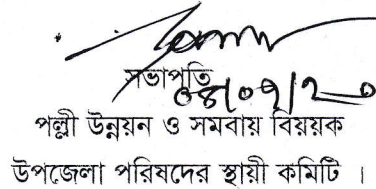 সভাপতি
পল্লী উন্নয়ন ও সমবায় বিয়য়ক
উপজেলা পরিষদের স্থায়ী কমিটি ।